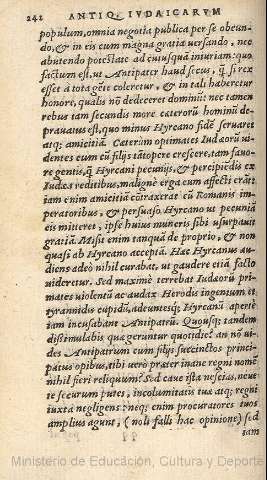 242 ANTIQ. IVDAICARVM
populum, omnia negotia publica per se obeun-
do, & in eis cum magna gratia versando, nec
abutendo potestate ad cuiusquã iniuriam: quo
factum est, ut Antipater haud secus, q̃ si rex
esset à tota gẽte coleretur, & in tali haberetur
honore, qualis nõ dedeceret dominũ: nec tamen
rebus tam secundis more cæterorũ hominũ de-
prauatus est, quo minus Hyrcano fidẽ seruaret
atq; amicitiã. Cæterùm optimates Iudæorũ ui-
dentes eum cũ filijs tãtopere crescere, tam fauo-
re gentis, q̃ Hyrcani pecunijs, & percipiẽdis ex
Iudæa reditibus, malignè erga eum affecti erãt.
iam enim amicitiã cõtraxerat cũ Romanis im-
peratoribus, & persuaso Hyrcano ut pecuniã
eis mitteret, ipse huius muneris sibi usurpauit
gratiã. Misit enim tanquã de proprio, & non
quasi ab Hyrcano acceptã. Hæc Hyrcanus au-
diens adeò nihil curabat, ut gaudere etiã facto
uideretur. Sed maximè terrebat Iudæorũ pri-
mates uiolentũ ac audax Herodis ingenium et
tyrannidis cupidũ, adeuntesq; Hyrcanũ apertè
iam incusabant Antipatrũ. Quousq; tandem
dissimulabis quæ geruntur quotidie? an nõ ui-
des Antipatrum cum filijs succinctos princi-
patus opibus, tibi uerò præter inane regni nomẽ
nihil fieri reliquum? Sed caue ista nescias, neue
te securum putes, incolumitatis tuæ atq; regni
iuxta negligens: neq; enim procuratores tuos
amplius agunt, (noli falli hac opinione) sed
qq
iam
Ministerio de Educación, Cultura y Deporte